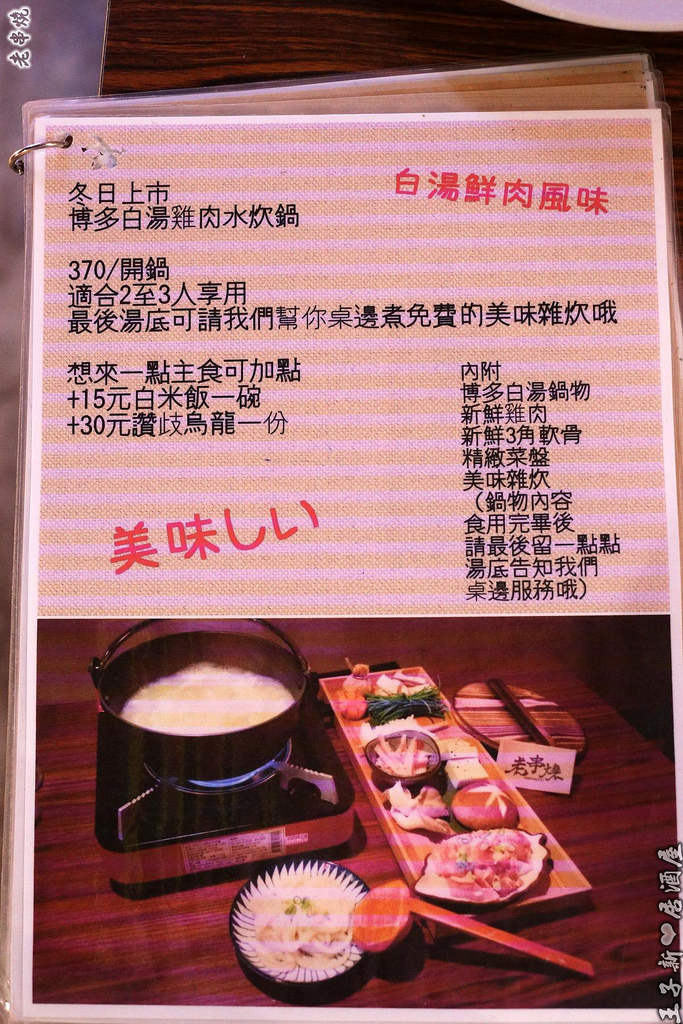 老串燒
白湯鮮肉風味
冬日上市
博多白湯雞肉水炊鍋
370/開鍋
適合2至3人享用
最後湯底可請我們幫你桌邊煮免費的美味雜炊哦
想來一點主食可加點
+15元白米飯一碗
+30元讚歧烏龍一份
內附
博多白湯鍋物
新鮮雞肉
新鮮3角軟骨
精緻菜盤
美味雜炊
（鍋物內容
食用完畢後
請最後留一點點
湯底告知我們
桌邊服務哦）
美味しい
老串燒
王子新❤居酒屋